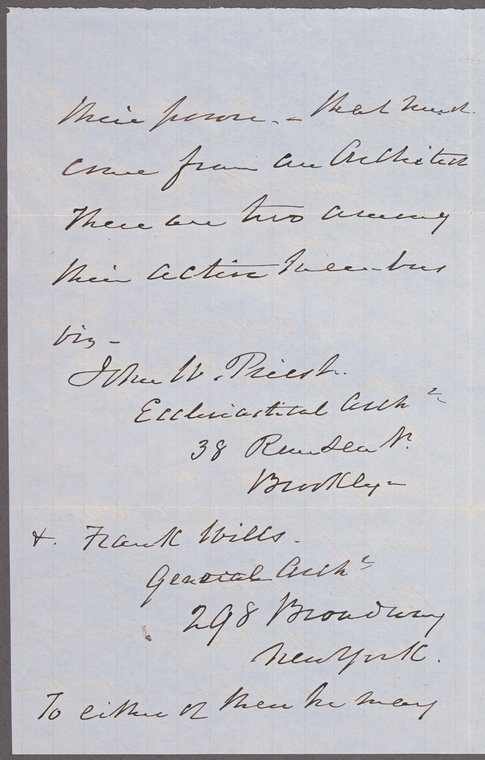 their power. - that must
come from an Architect
There are two among
their active members
viz -
John W. Priest.
Ecclesiastical Arch^t
38 Remsen St.
Brooklyn
+. Frank Wills.
General Arch^t
298 Broadway
New York.
To either of them he may